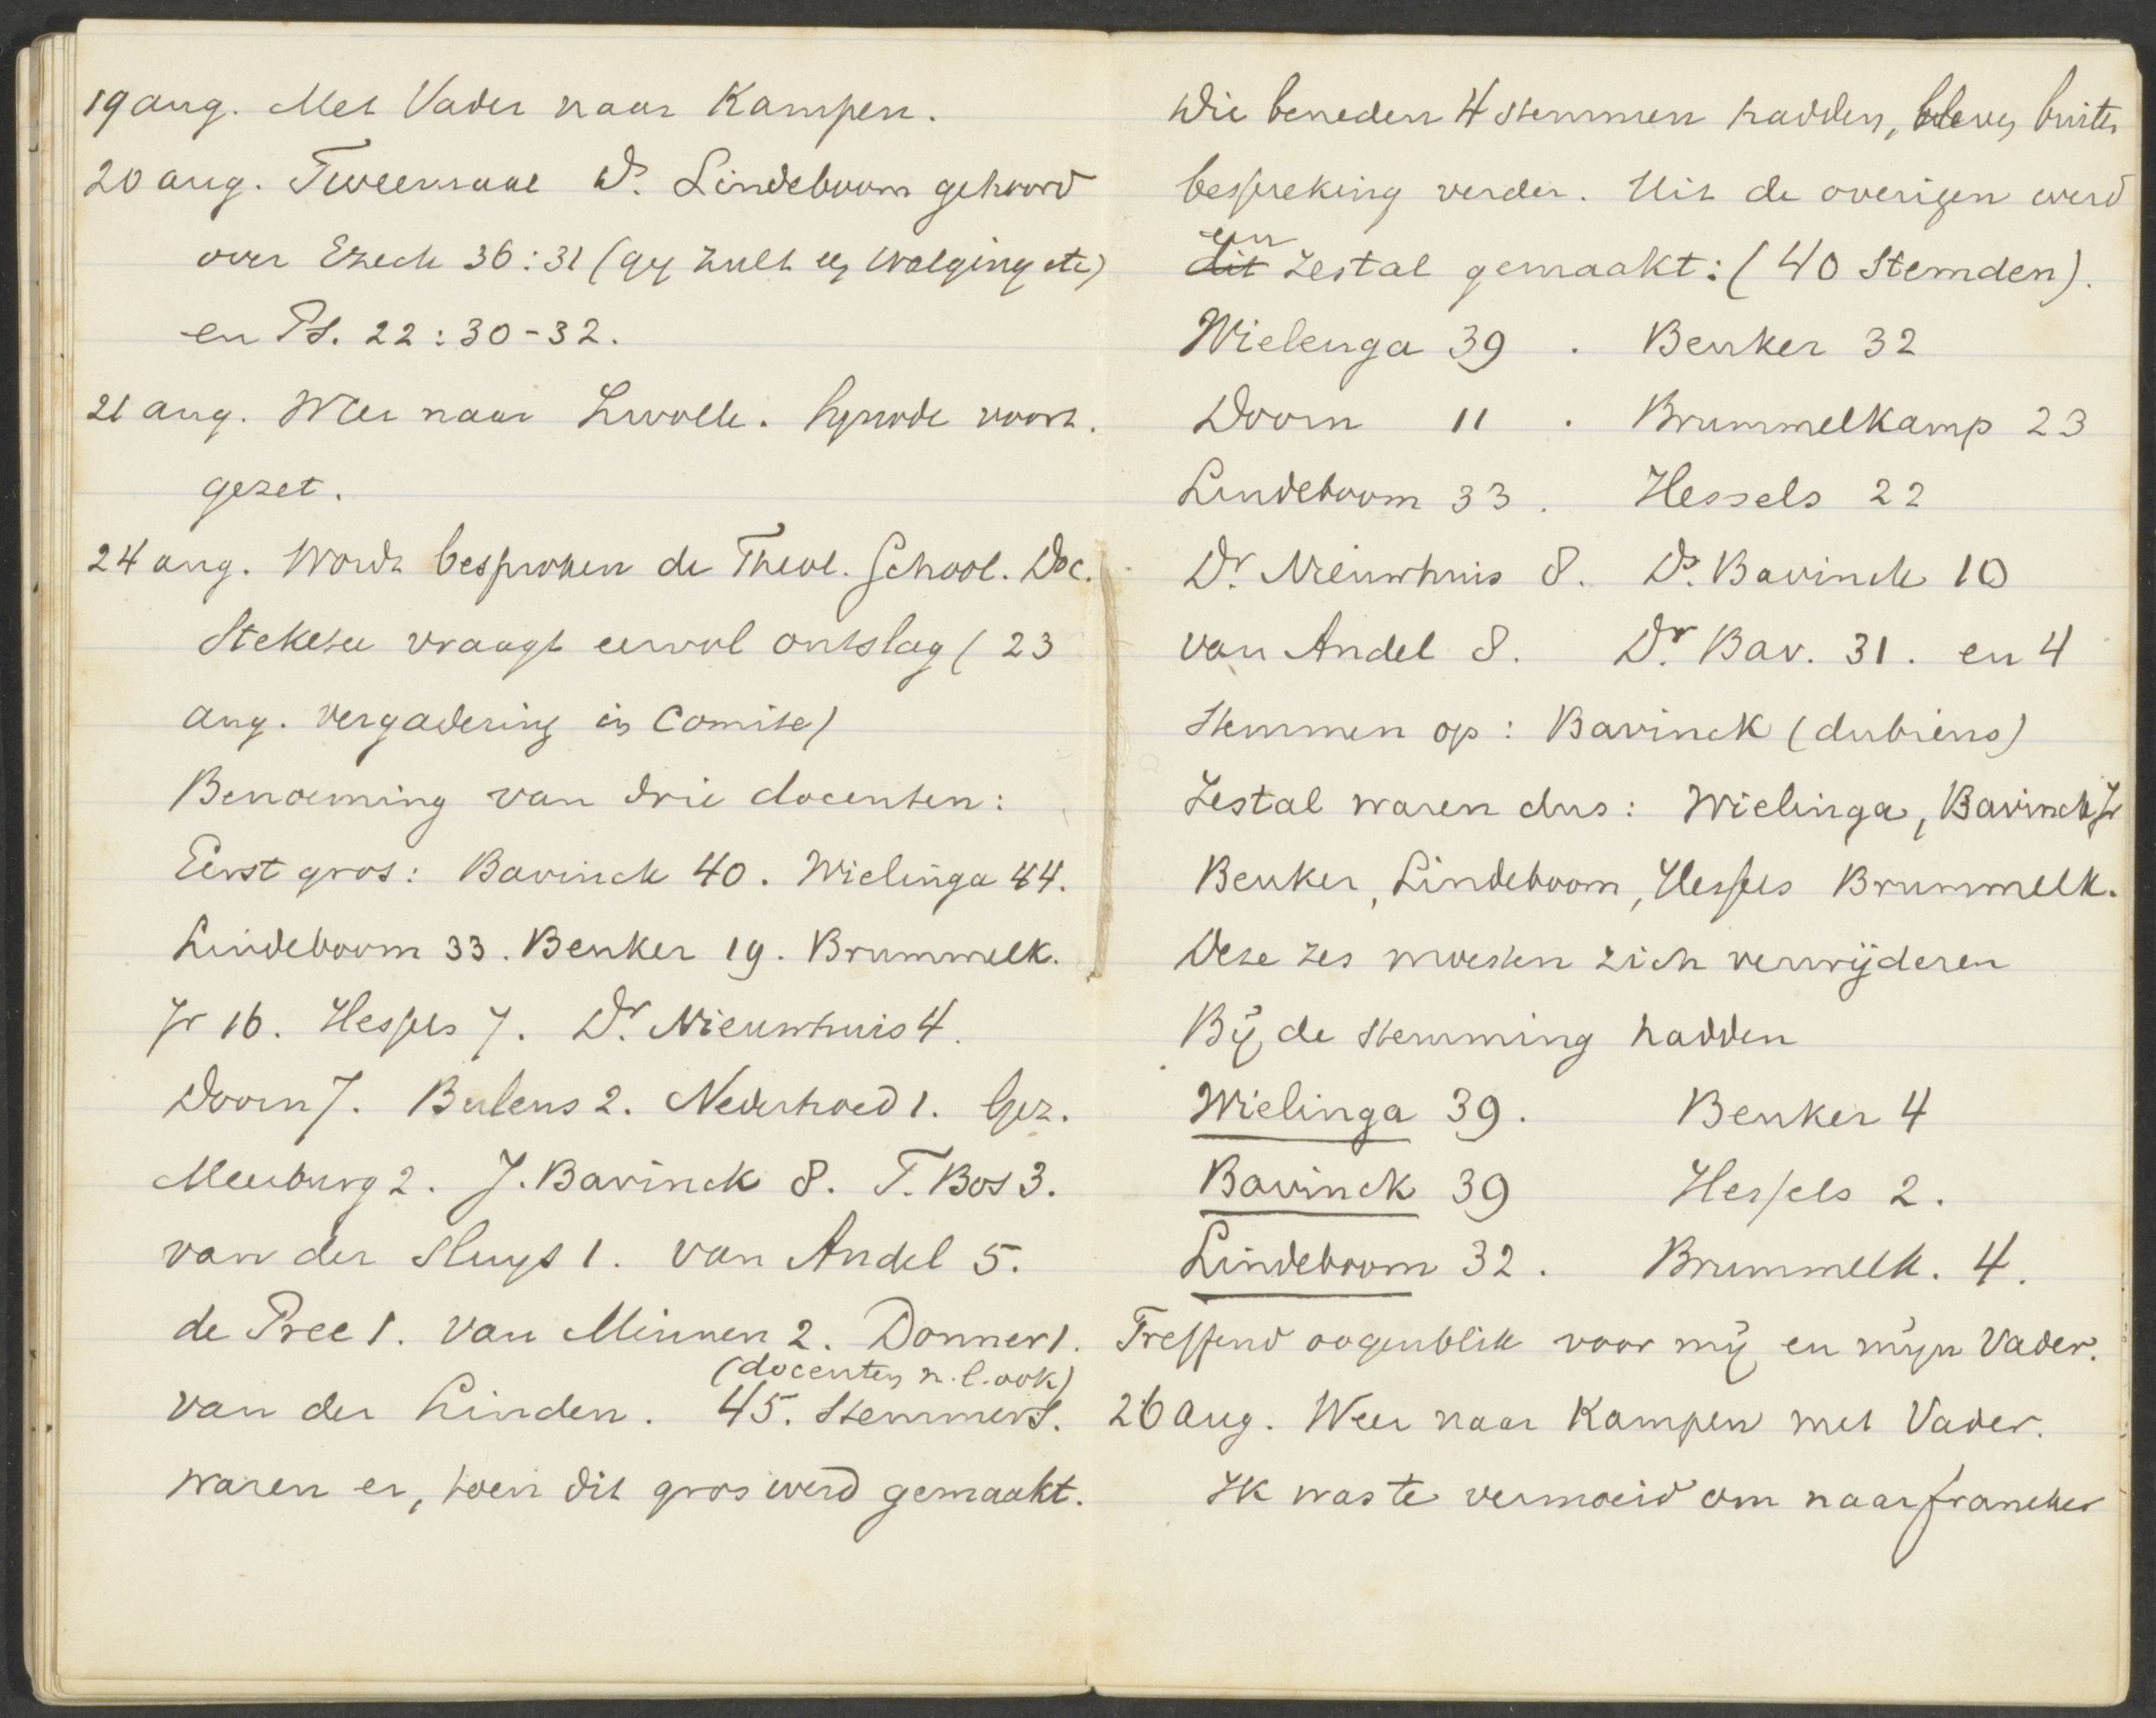 19 aug. Met Vader naar Kampen.
20 aug. Tweemaal Ds. Lindeboom gehoord
over Ezech 36:31 (gij zult een walging etc)
en Ps. 22:30-32.
21 aug. Weer naar Zwolle. Synode voort.
gezet.
24 aug. Wordt besproken de Theol. School. Doc.
Steketee vraagt eervol ontslag (23
aug. vergadering in Comite)
Benoeming van drie docenten:
Eerst gros: Bavinck 40. Wielinga 44.
Lindeboom 33. Beuker 19. Brummelk.
Jr 16. Hessels 7. Dr. Nieuwhuis 4.
Doorn 7. Bulens 2. Nederhoed 1. Gez.
Meerburg 2. J. Bavinck 8. T. Bos 3.
van der Sluys 1. van Andel 5.
de Pree 1. van Minnen 2. Donner 1.
(docenten n.l. ook)
van der Linden. 45. stemmers.
waren er, toen dit gros werd gemaakt.
Die beneden 4 stemmen hadden, bleven buiten
bespreking verder. Uit de overigen werd
een
dit zestal gemaakt: (40 stemden).
Wielenga 39 . Beuker 32
Doorn 11 . Brummelkamp 23
Lindeboom 33 . Hessels 22
Dr. Nieuwhuis 8. Ds. Bavinck 10
van Andel 8. Dr. Bav. 31. en 4
stemmen op: Bavinck (dubieus)
Zestal waren dus: Wielinga, Bavinck Jr
Beuker, Lindeboom, Hessels Brummelk.
Deze zes moesten zich verwijderen
Bij de stemming hadden
Wielinga 39. Beuker 4
Bavinck 39 Hessels 2.
Lindeboom 32. Brummelk. 4.
Treffend oogenblik voor mij en mijn Vader.
26 aug. Weer naar Kampen met Vader.
Ik was te vermoeid om naar Franeker